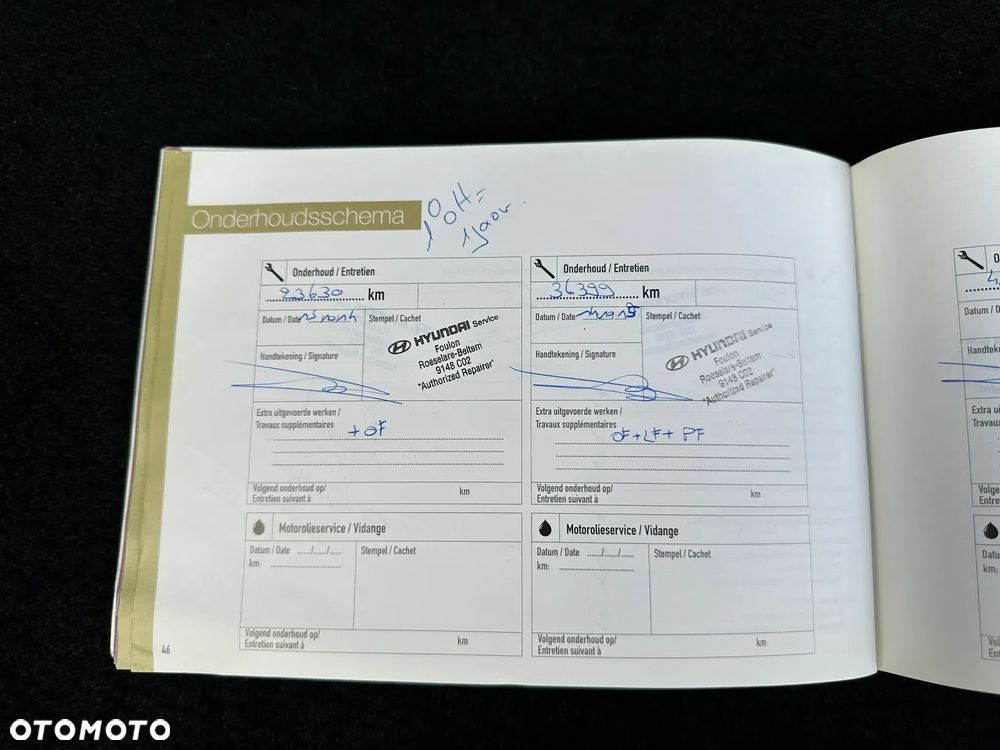 Onderhoudsschema
Onderhoud / Entretien
23630 km
Datum / Date
Stempel / Cachet
HYUNDAI Service
Foulon
Roeselare-Beitem
9148 C02
"Authorized Repairer"
Handtekening / Signature
Extra uitgevoerde werken /
Travaux supplémentaires
+OF
Volgend onderhoud op/
Entretien suivant à
km
Motorolieservice / Vidange
Datum / Date ....../....../......
Stempel / Cachet
km:
Volgend onderhoud op/
Entretien suivant à
km
Onderhoud / Entretien
36399 km
Datum / Date
Stempel / Cachet
HYUNDAI Service
Foulon
Roeselare-Beitem
9148 C02
"Authorized Repairer"
Handtekening / Signature
Extra uitgevoerde werken /
Travaux supplémentaires
OF+LF+ PF
Volgend onderhoud op/
Entretien suivant à
km
Motorolieservice / Vidange
Datum / Date ....../....../......
Stempel / Cachet
km:
Volgend onderhoud op/
Entretien suivant à
km
46
OTOMOTO